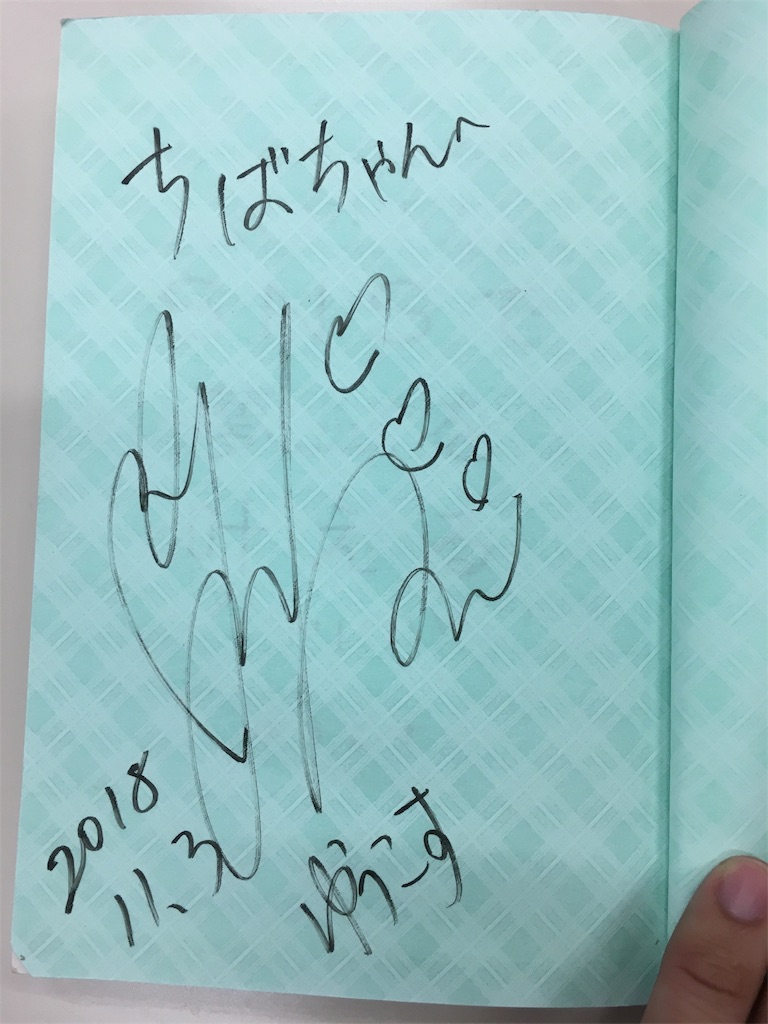 ちばちゃんへ
2018
11.3
ゆうこす